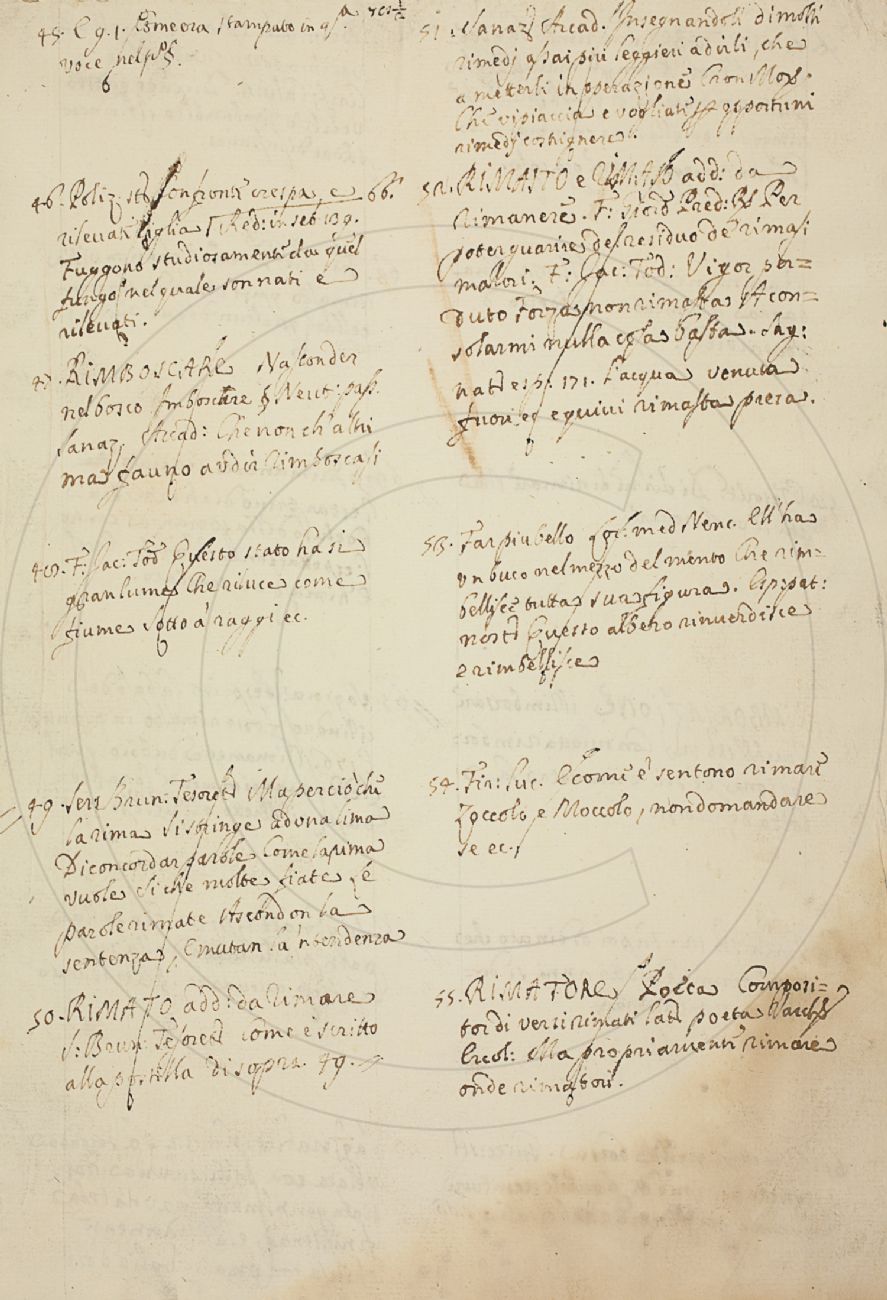 45. E g. 1. Come era stampato in
voce nel
46. Poliz. st. Con fronte crespa, e 66.
rilevate ciglia Red: Ins. 139.
Fuggono studiosamente da quel
fungo, nel quale son nati e
rilevati.
47. RIMBOSCARE Nasconder
nel bosco Imboscare § Neut: pass.
Sanaz. Arcad: Che non ch'altri
ma fauno a udir rimboscasi
48. F. Jac: Tod Questo stato ha si
gran lume Che riluce come
fiume sotto a' raggi ec.
49. Sere Brun: Tesoret Ma perciò che
la rima Si stringe ad una lima
Di concordar parole Come la rima
vuole Si che molte fiate Le
parole rimate Ascondon la
sentenza, E mutan la 'ntendenza
50. RIMATO add: da Rimare
S: Brun Tesoret come è scritto
alla postilla di sopra. 49.
51. Sanaz Arcad. Insegnandoli di molti
rimedj assai più leggieri a dirli, che
a metterli in operazione
Che vi piaccia e vogliate opportuni
rimedj costrignere.
52. RIMASTO e RIMASO add: da
Rimanere. F: Giord Pred: Per
poter guarire del residuo de' rimasi
malori. F: Jac: Tod: Vigor per=
duto Forza non rimasta A con=
solarmi nulla cosa basta. Sag:
nat esp. 171. L'acqua venuta
fuori, e quivi rimasta presa.
53. Far più bello Lor: med Nenc. Ell' ha
un buco nel mezzo del mento Che rim=
bellisce tutta sua figura. Esp: pat:
nost Questo albero rinverdisce
e rimbellisce
54. Fir: Luc. E come e' sentono rimare
Zoccolo, e Moccolo, non domandare
se ec.
55. RIMATORE Poeta Composi=
tor di versi rimati Lat poeta Varch
Ercol: Ma propriamente rimare
onde rimatori.